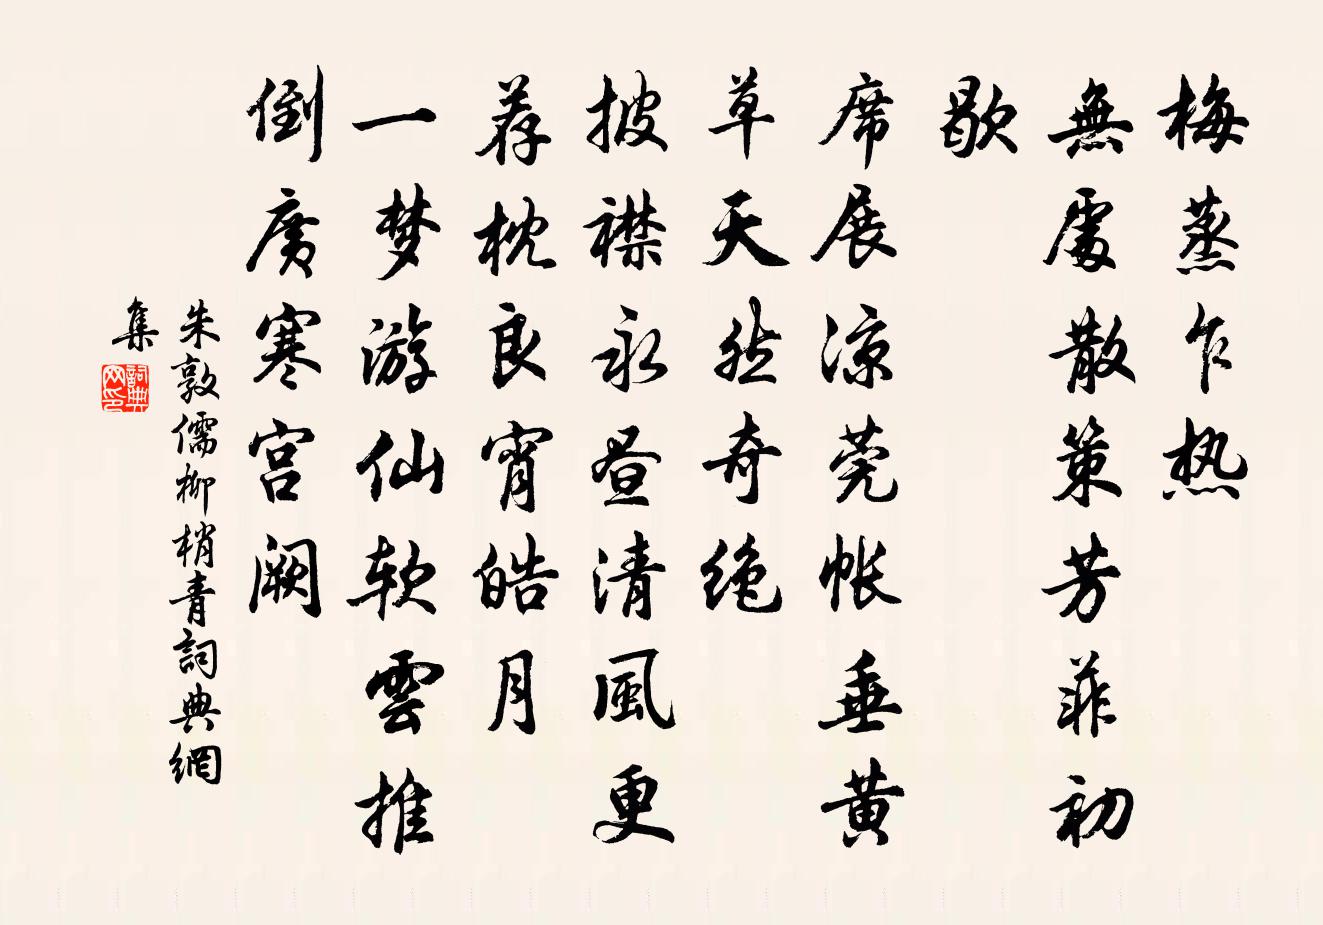 梅蒸乍热
無處散策芳菲初
歇
席展凉莞帐垂黄
草天然奇绝
披襟永昼清風更
荐枕良宵皓月
一梦游仙软雲推
倒廣寒宫阙
朱敦儒柳梢青詞典網
集
詞典
网印